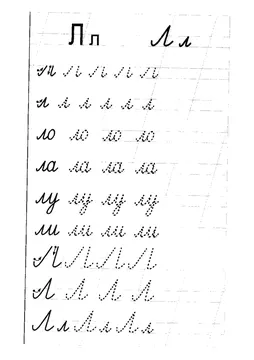 Л л Л л
Л Л Л Л Л
л л л л л л
ло ло ло ло
ла ла ла ла
лу лу лу лу
ли ли ли ли
Л Л Л Л
Л Л Л Л
Л л Л л Л л